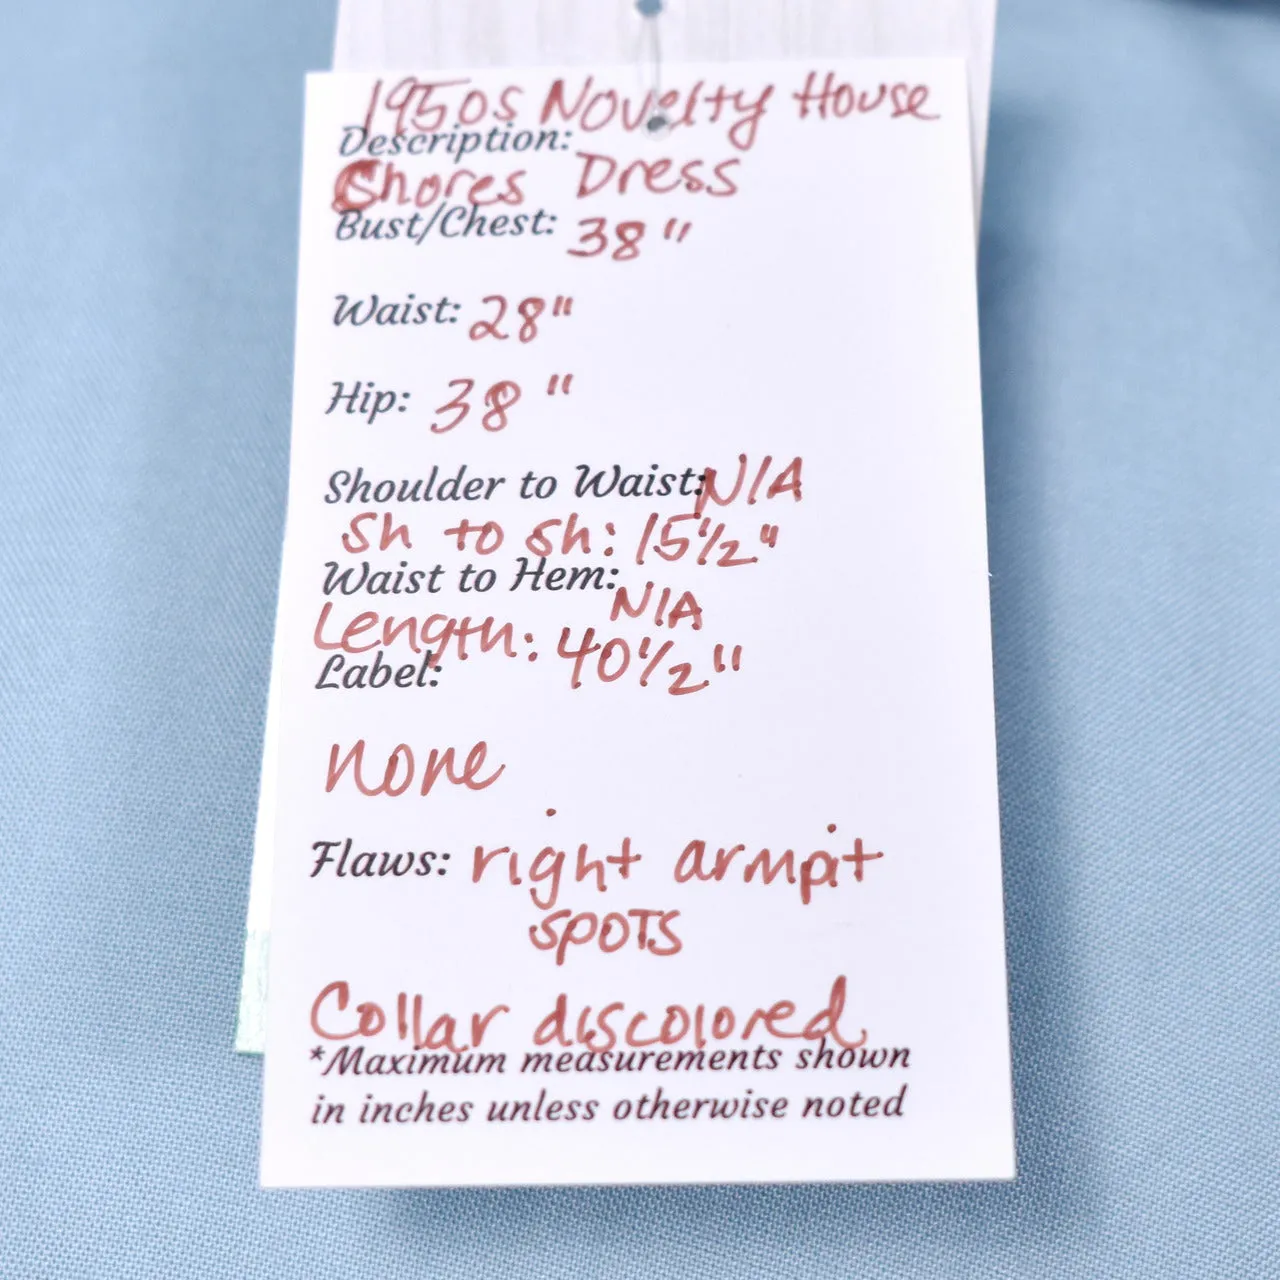 1950s Novelty House
Description:
Chores Dress
Bust/Chest: 38"
Waist: 28"
Hip: 38"
Shoulder to Waist: N/A
Sh to sh: 15 1/2"
Waist to Hem: N/A
Length: 40 1/2"
Label:
none
Flaws: right armpit
spots
Collar discolored
*Maximum measurements shown
in inches unless otherwise noted